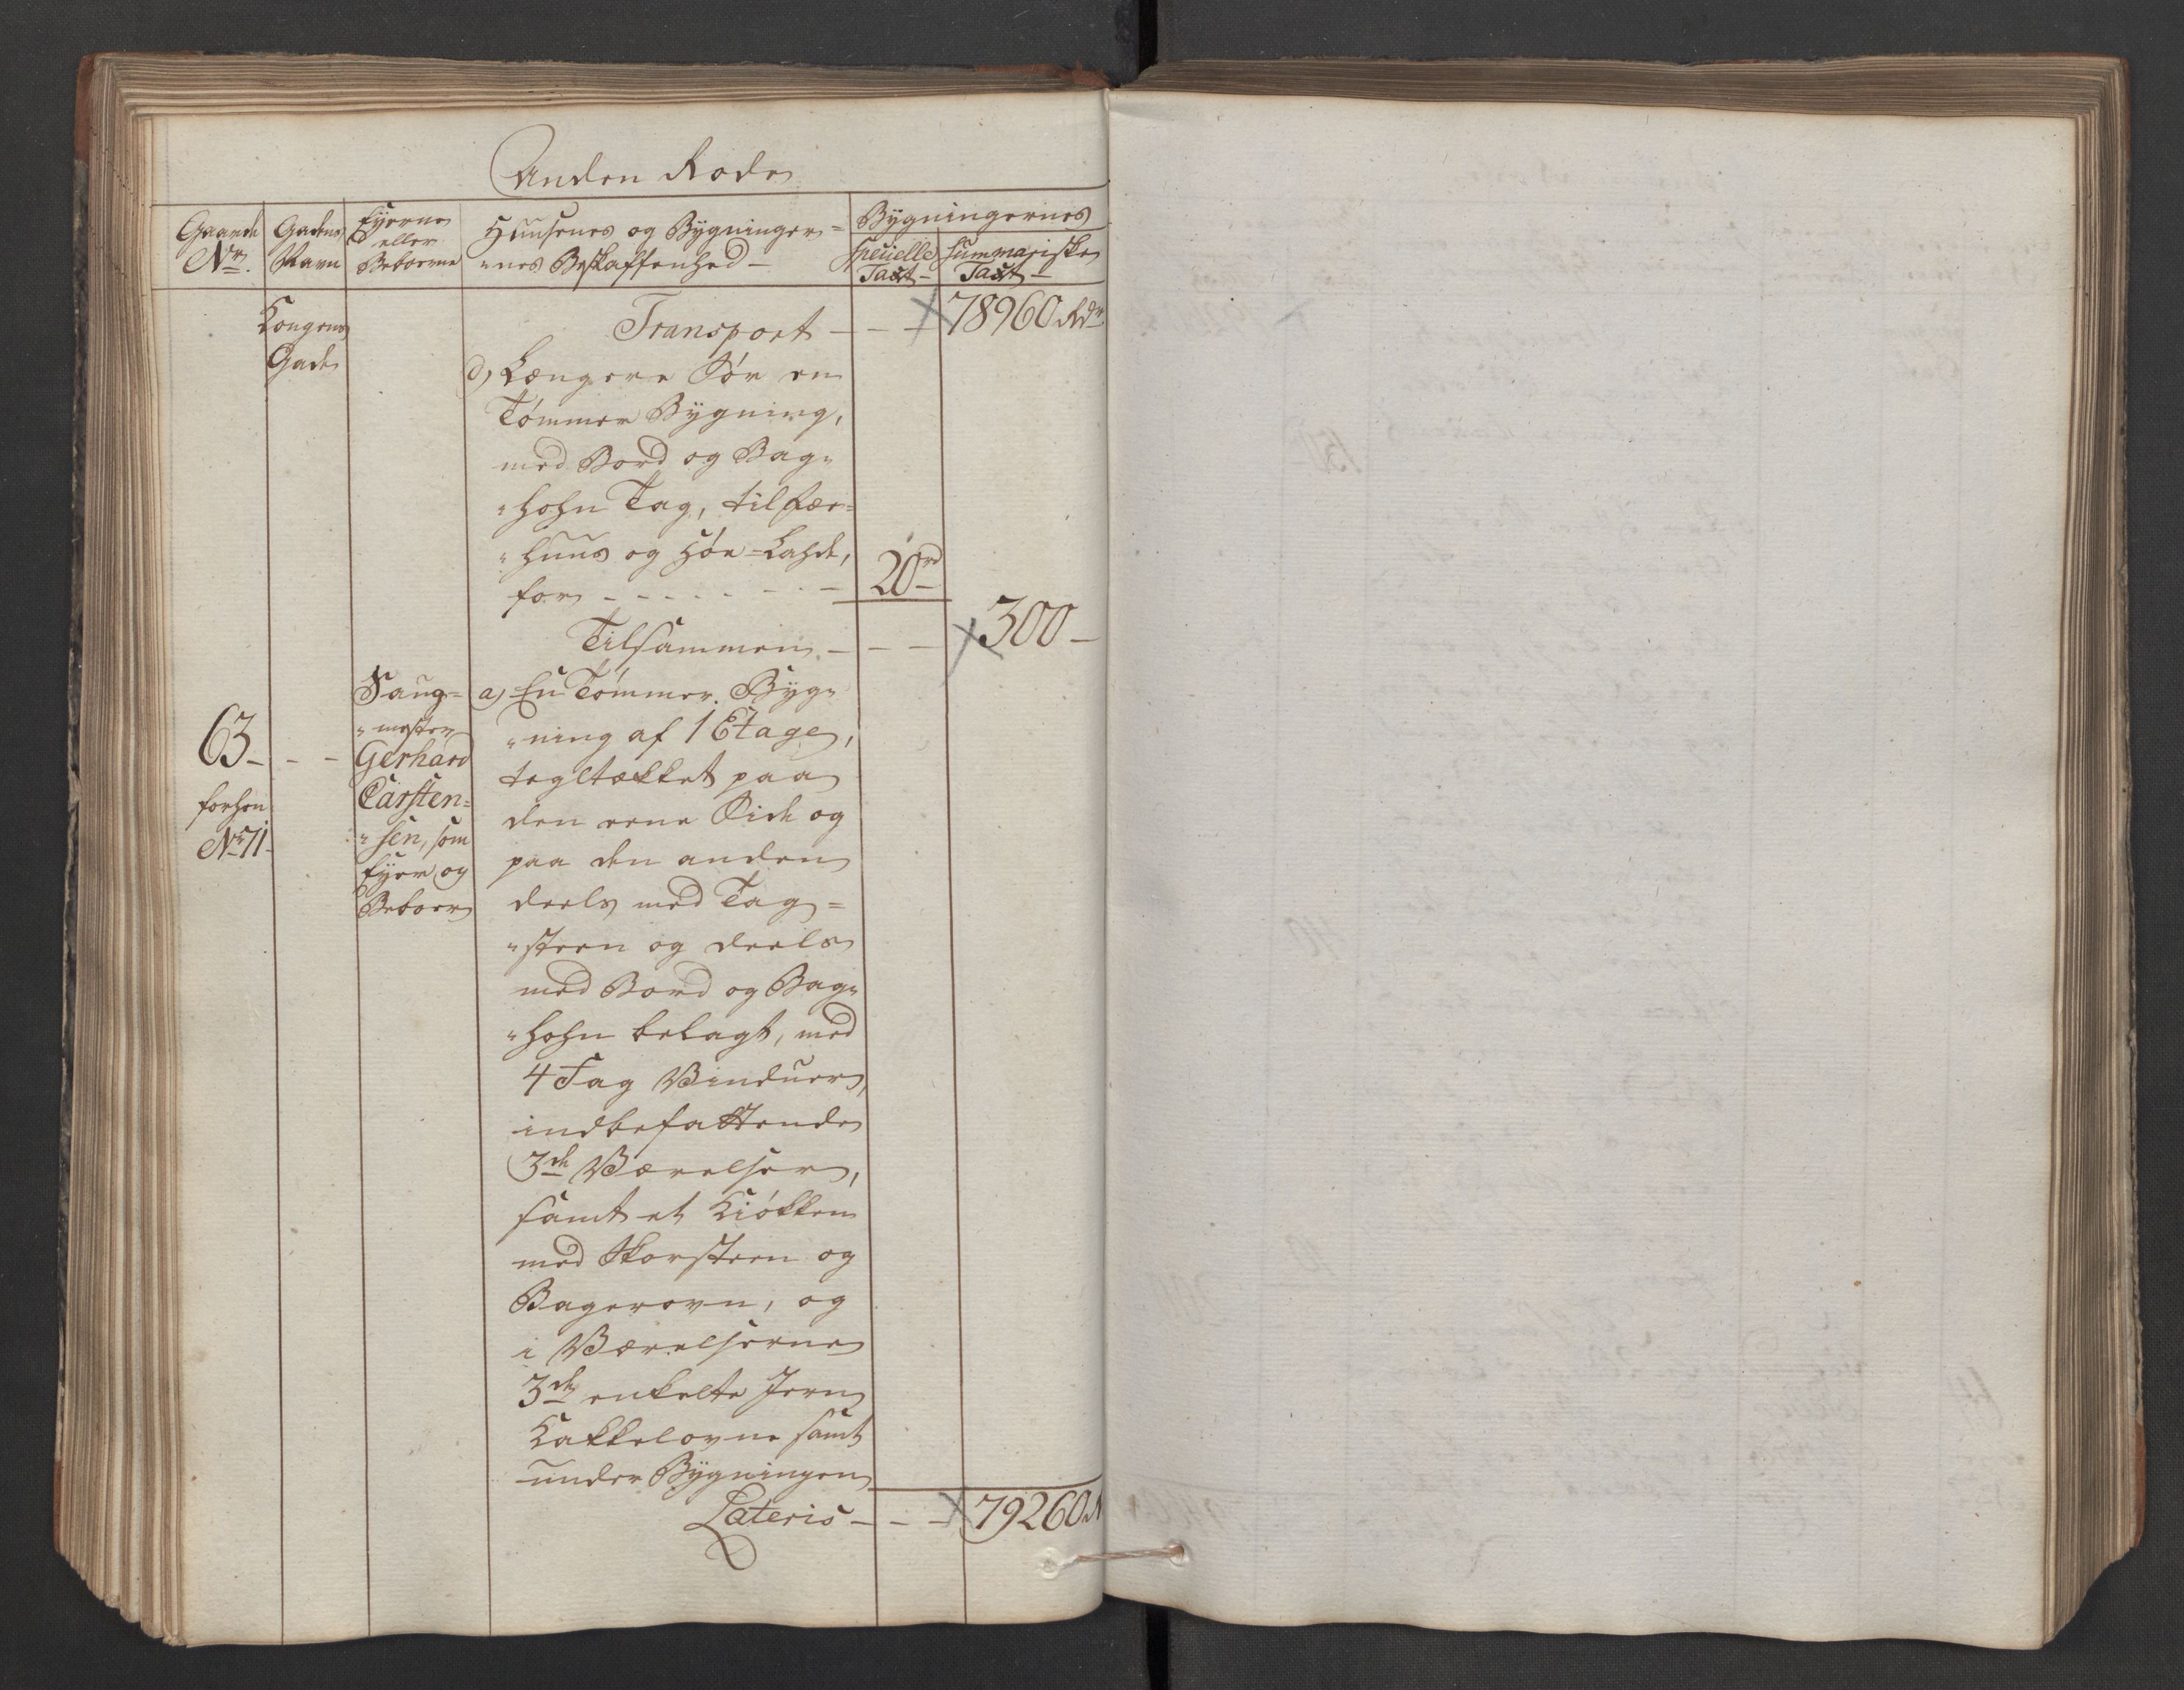 Anden Rode
Gaarde Nr.
Gadens Navn
Eyerne eller Beboerne
Huusenes og Bygninger=
"nes Beskaffenhed –
Bygningernes
Specielle Taxt –
Summariske Taxt –
Kongens
Gade
Transport – – – 78960 Rdr
d, Længere Før en
Tømmer Bygning,
med Bord og Bag"
"hohn Tag, til Fær=
"huus og Høe=Lahde,
for – – – – – – 20rd
Tilsammen – – – 300 –
63 – – –
forhen
Nr 71.
Saug=
"mester
Gerhard
Carsten=
"sen, som
Eyer og
Beboer
a, En Tømmer Byg"
"ning af 1 Etage,
tegltækket paa
den eene Side og
paa den anden
deels med Tag=
"steen og deels
med Bord og Bag"
"hohn belagt, med
4 Fag Vinduer,
indbefattende
3de Værelser,
samt et Kiøkken
med Skorsteen og
Bagerovn, og
i Værelserne
3de enkelte Jern
Kakkelovne samt
under Bygningen
Lateris – – – 79260 R